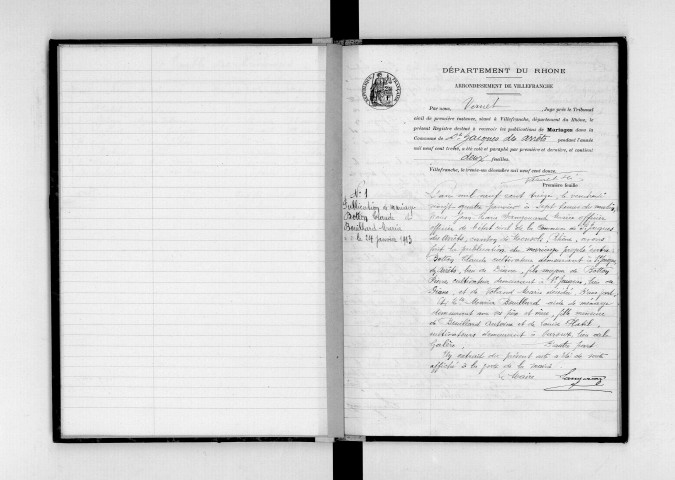 DÉPARTEMENT DU RHONE
ARRONDISSEMENT DE VILLEFRANCHE
Par nous Vernet, Juge près le Tribunal
civil de première instance, séant à Villefranche, département du Rhône, le
présent Registre destiné à recevoir les publications de Mariages dans la
Commune de St Jacques des Arrêts pendant l'année
mil neuf cent treize, a été coté et paraphé par première et dernière, et contient
deux feuilles.
Villefranche, le trente-un décembre mil neuf cent douze.
Première feuille
N° 1
Publication de mariage
Botton Claude &
Bouillard Maria
le 24 janvier 1913
L'an mil neuf cent treize, le vendredi
vingt quatre janvier à sept heures du matin
nous Jean Marie maire officier
officier de l'état civil de la Commune de St Jacques
des Arrêts, canton de Monsols, Rhône, avons
fait la publication de mariage projeté entre
Botton Claude cultivateur demeurant à St Jacques
des Arrêts, lieu de fils majeur de Botton
Pierre cultivateur demeurant à St Jacques, lieu de
et de Marie décédée D'une part,
Et Mlle Maria Bouillard aide de ménage
demeurant avec ses père et mère, fille mineure
de Bouillard Antoine et de
cultivateurs demeurant à Ouroux lieu de la
D'autre part
Un extrait du présent acte a été de suite
affiché à la porte de la mairie
Le Maire